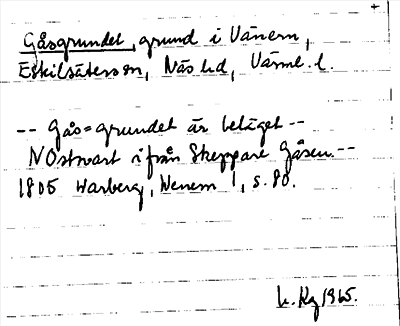 Gåsgrundet, grund i Vänern,
Eskilsäters sn, Näs hd, Värml. l.
-- Gås=grundet är beläget --
NOstwart ifrån Skeppare Gåsen. --
1805 Warberg, Wenern 1, s. 80.
1965.